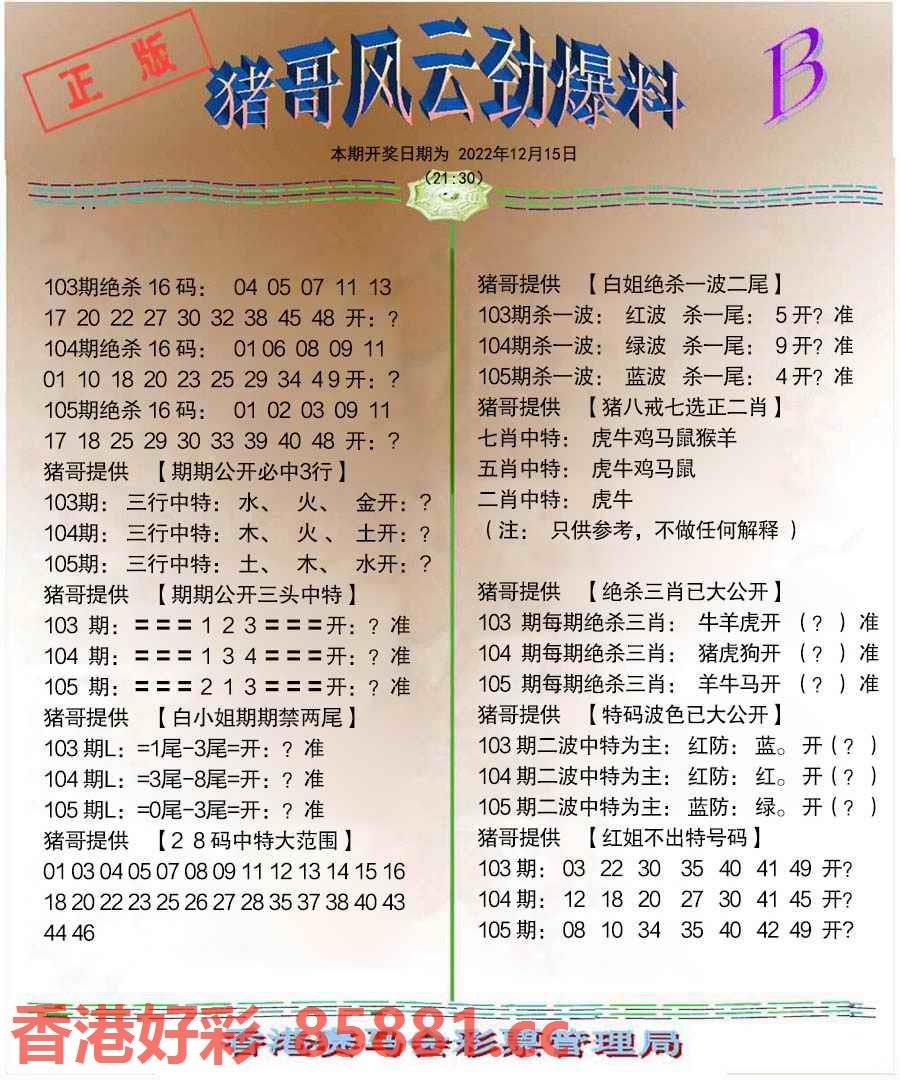 正版
猪哥风云劲爆料
B
本期开奖日期为 2022年12月15日
(21:30)
103期绝杀16码： 04 05 07 11 13
17 20 22 27 30 32 38 45 48 开：?
104期绝杀16码： 01 06 08 09 11
01 10 18 20 23 25 29 34 49 开：?
105期绝杀16码： 01 02 03 09 11
17 18 25 29 30 33 39 40 48 开：?
猪哥提供 【期期公开必中3行】
103期：三行中特：水、 火、 金开：?
104期：三行中特：木、 火、 土开：?
105期：三行中特：土、 木、 水开：?
猪哥提供 【期期公开三头中特】
103 期：===123===开：? 准
104 期：===134===开：? 准
105 期：===213===开：? 准
猪哥提供 【白小姐期期禁两尾】
103期L：=1尾-3尾=开：? 准
104期L：=3尾-8尾=开：? 准
105期L：=0尾-3尾=开：? 准
猪哥提供 【28码中特大范围】
01 03 04 05 07 08 09 11 12 13 14 15 16
18 20 22 23 25 26 27 28 35 37 38 40 43
44 46
猪哥提供 【白姐绝杀一波二尾】
103期杀一波： 红波 杀一尾： 5开? 准
104期杀一波： 绿波 杀一尾： 9开? 准
105期杀一波： 蓝波 杀一尾： 4开? 准
猪哥提供 【猪八戒七选正二肖】
七肖中特： 虎牛鸡马鼠猴羊
五肖中特： 虎牛鸡马鼠
二肖中特： 虎牛
（注： 只供参考，不做任何解释 ）
猪哥提供 【绝杀三肖已大公开】
103 期每期绝杀三肖： 牛羊虎开 （? ）准
104 期每期绝杀三肖： 猪虎狗开 （? ）准
105 期每期绝杀三肖： 羊牛马开 （? ）准
猪哥提供 【特码波色已大公开】
103期二波中特为主：红防：蓝。开(? )
104期二波中特为主：红防：红。开(? )
105期二波中特为主：蓝防：绿。开(? )
猪哥提供 【红姐不出特号码】
103期： 03 22 30 35 40 41 49 开?
104期： 12 18 20 27 30 41 45 开?
105期： 08 10 34 35 40 42 49 开?
香港好彩 85881.cc
香港赛马会彩票管理局